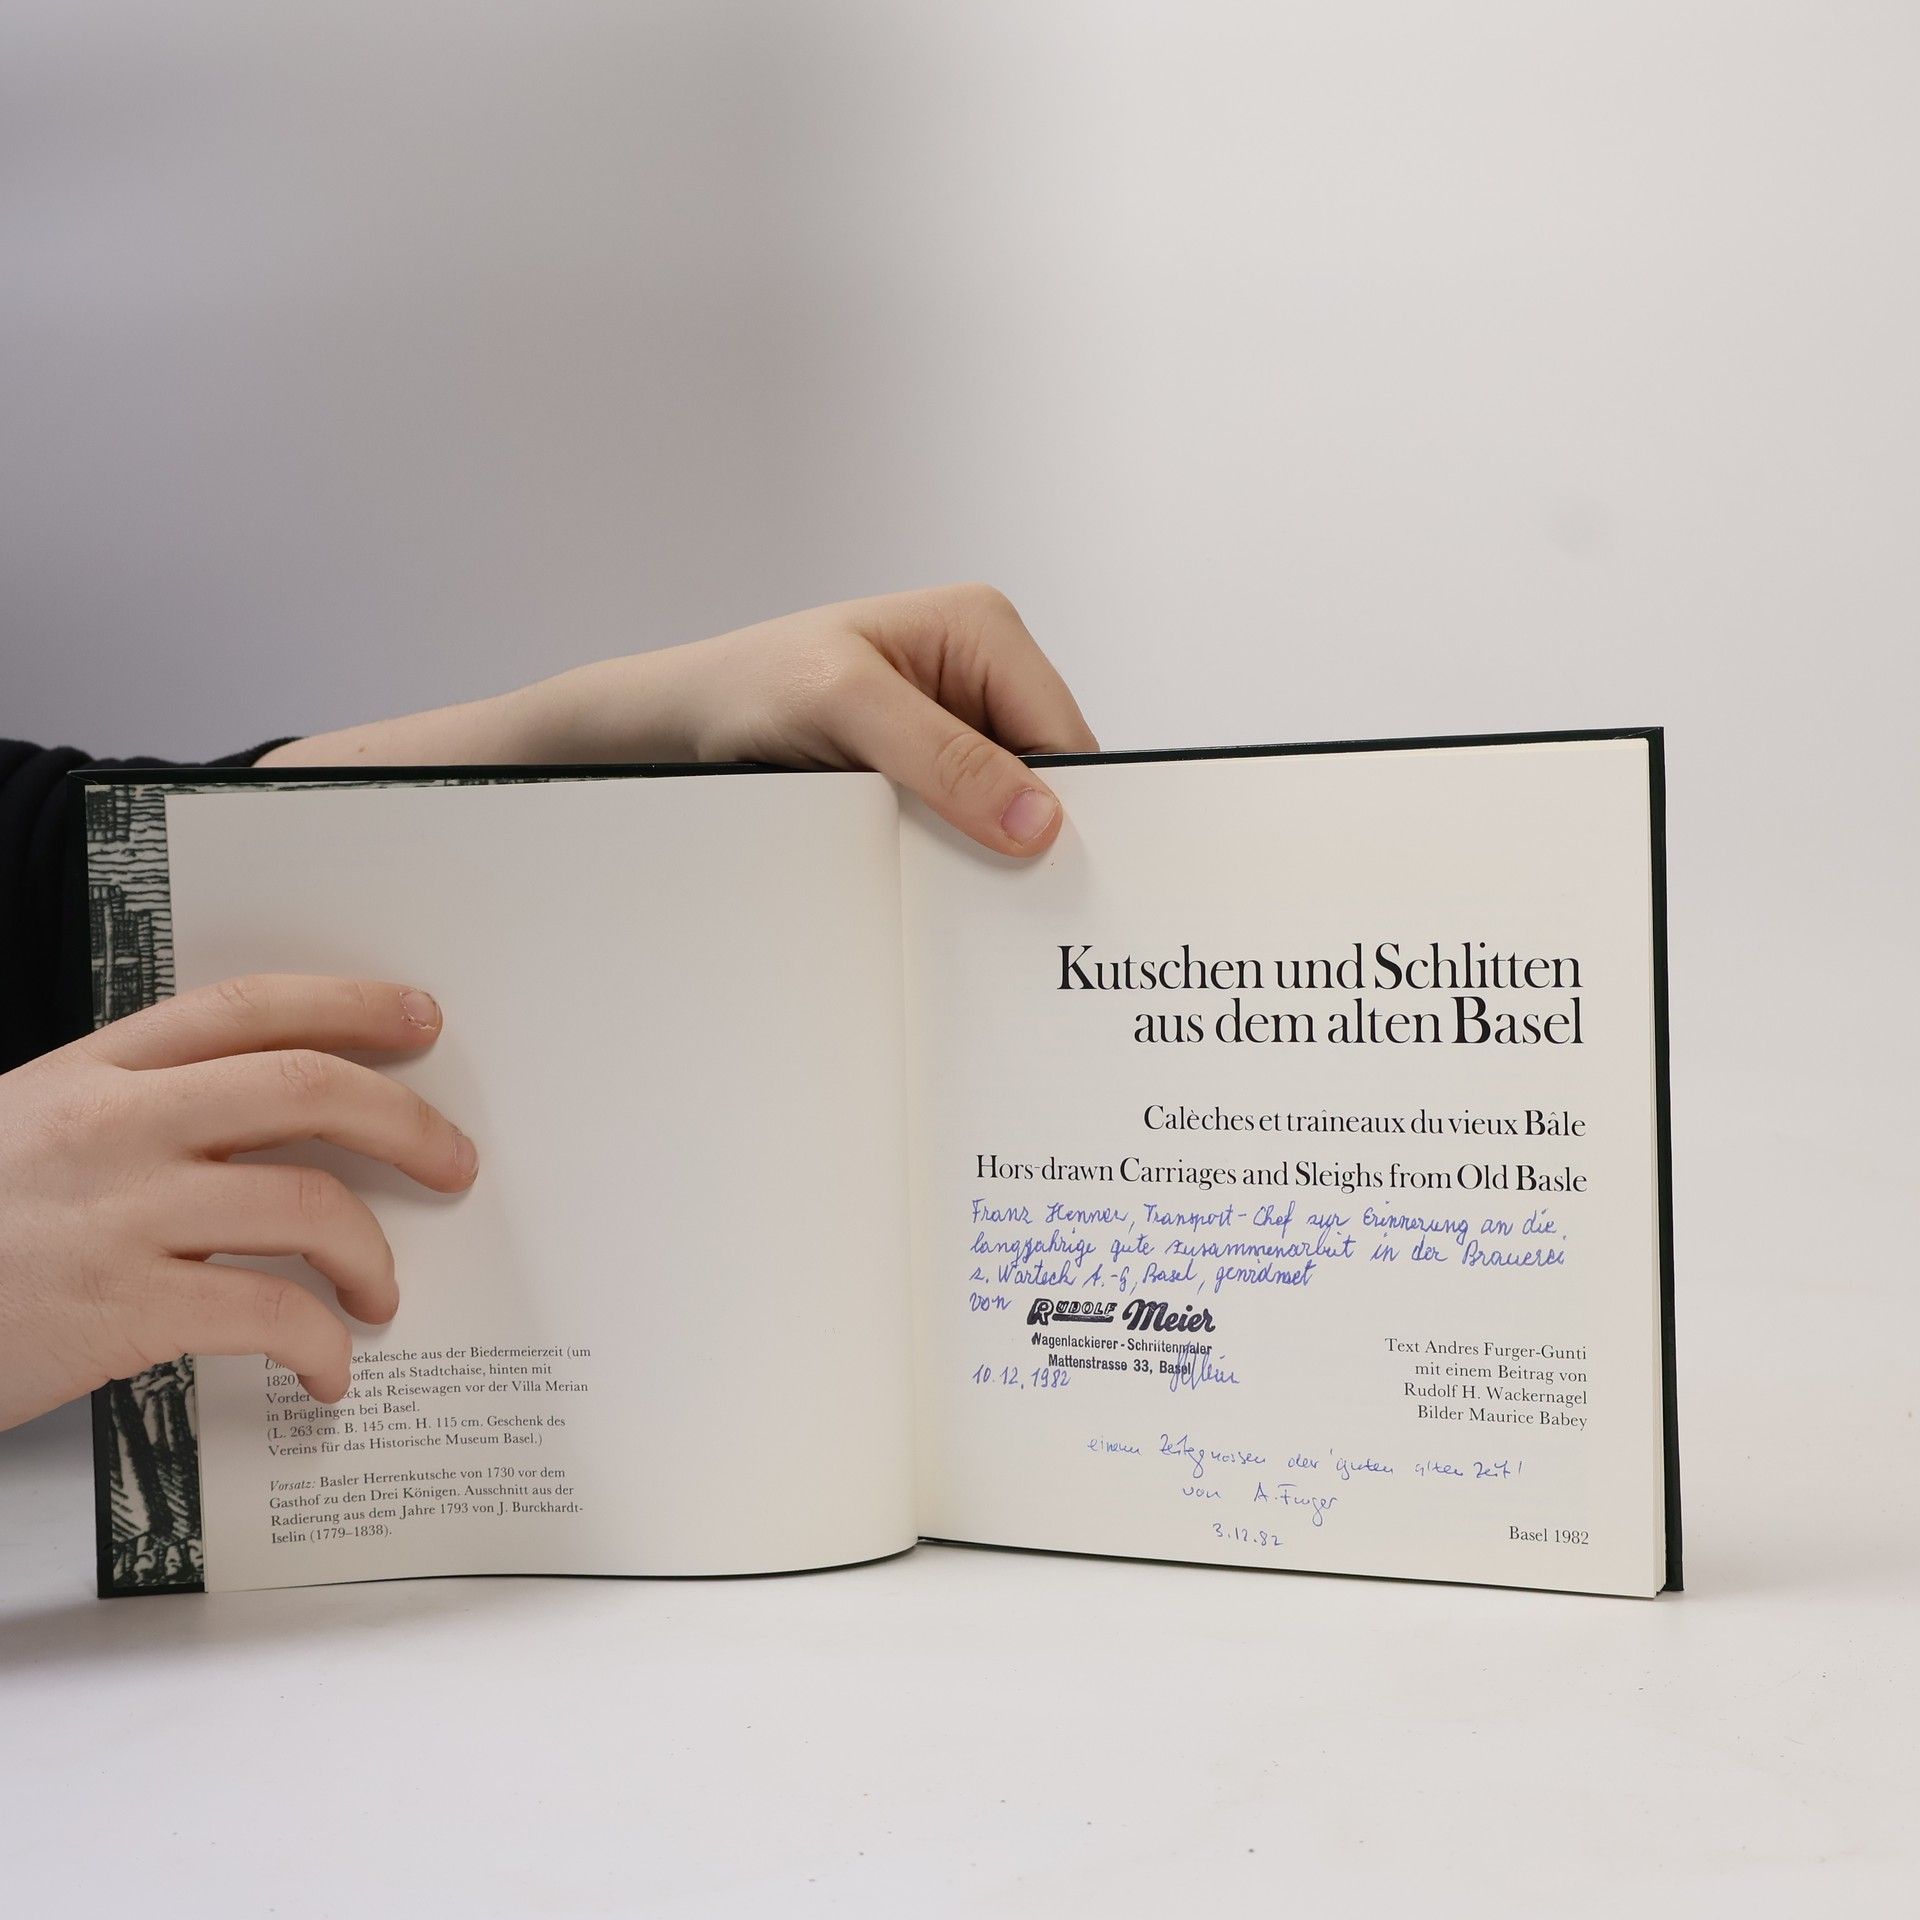 sekalesche aus der Biedermeierzeit (um
1820) offen als Stadtchaise, hinten mit
Vorder ck als Reisewagen vor der Villa Merian
in Brüglingen bei Basel.
(L. 263 cm. B. 145 cm. H. 115 cm. Geschenk des
Vereins für das Historische Museum Basel.)
Vorsatz: Basler Herrenkutsche von 1730 vor dem
Gasthof zu den Drei Königen. Ausschnitt aus der
Radierung aus dem Jahre 1793 von J. Burckhardt-
Iselin (1779–1838).
Kutschen und Schlitten
aus dem alten Basel
Calèches et traîneaux du vieux Bâle
Hors-drawn Carriages and Sleighs from Old Basle
Franz Henner, Transport-Chef zur Erinnerung an die
langjährige gute Zusammenarbeit in der Brauerei
z. Warteck A.-G, Basel, gewidmet
von RUDOLF Meier
Wagenlackierer - Schriftenmaler
Mattenstrasse 33, Basel
10.12.1982
Text Andres Furger-Gunti
mit einem Beitrag von
Rudolf H. Wackernagel
Bilder Maurice Babey
einem Zeitgnossen der 'guten alten Zeit'!
von A. Furger
3.12.82
Basel 1982